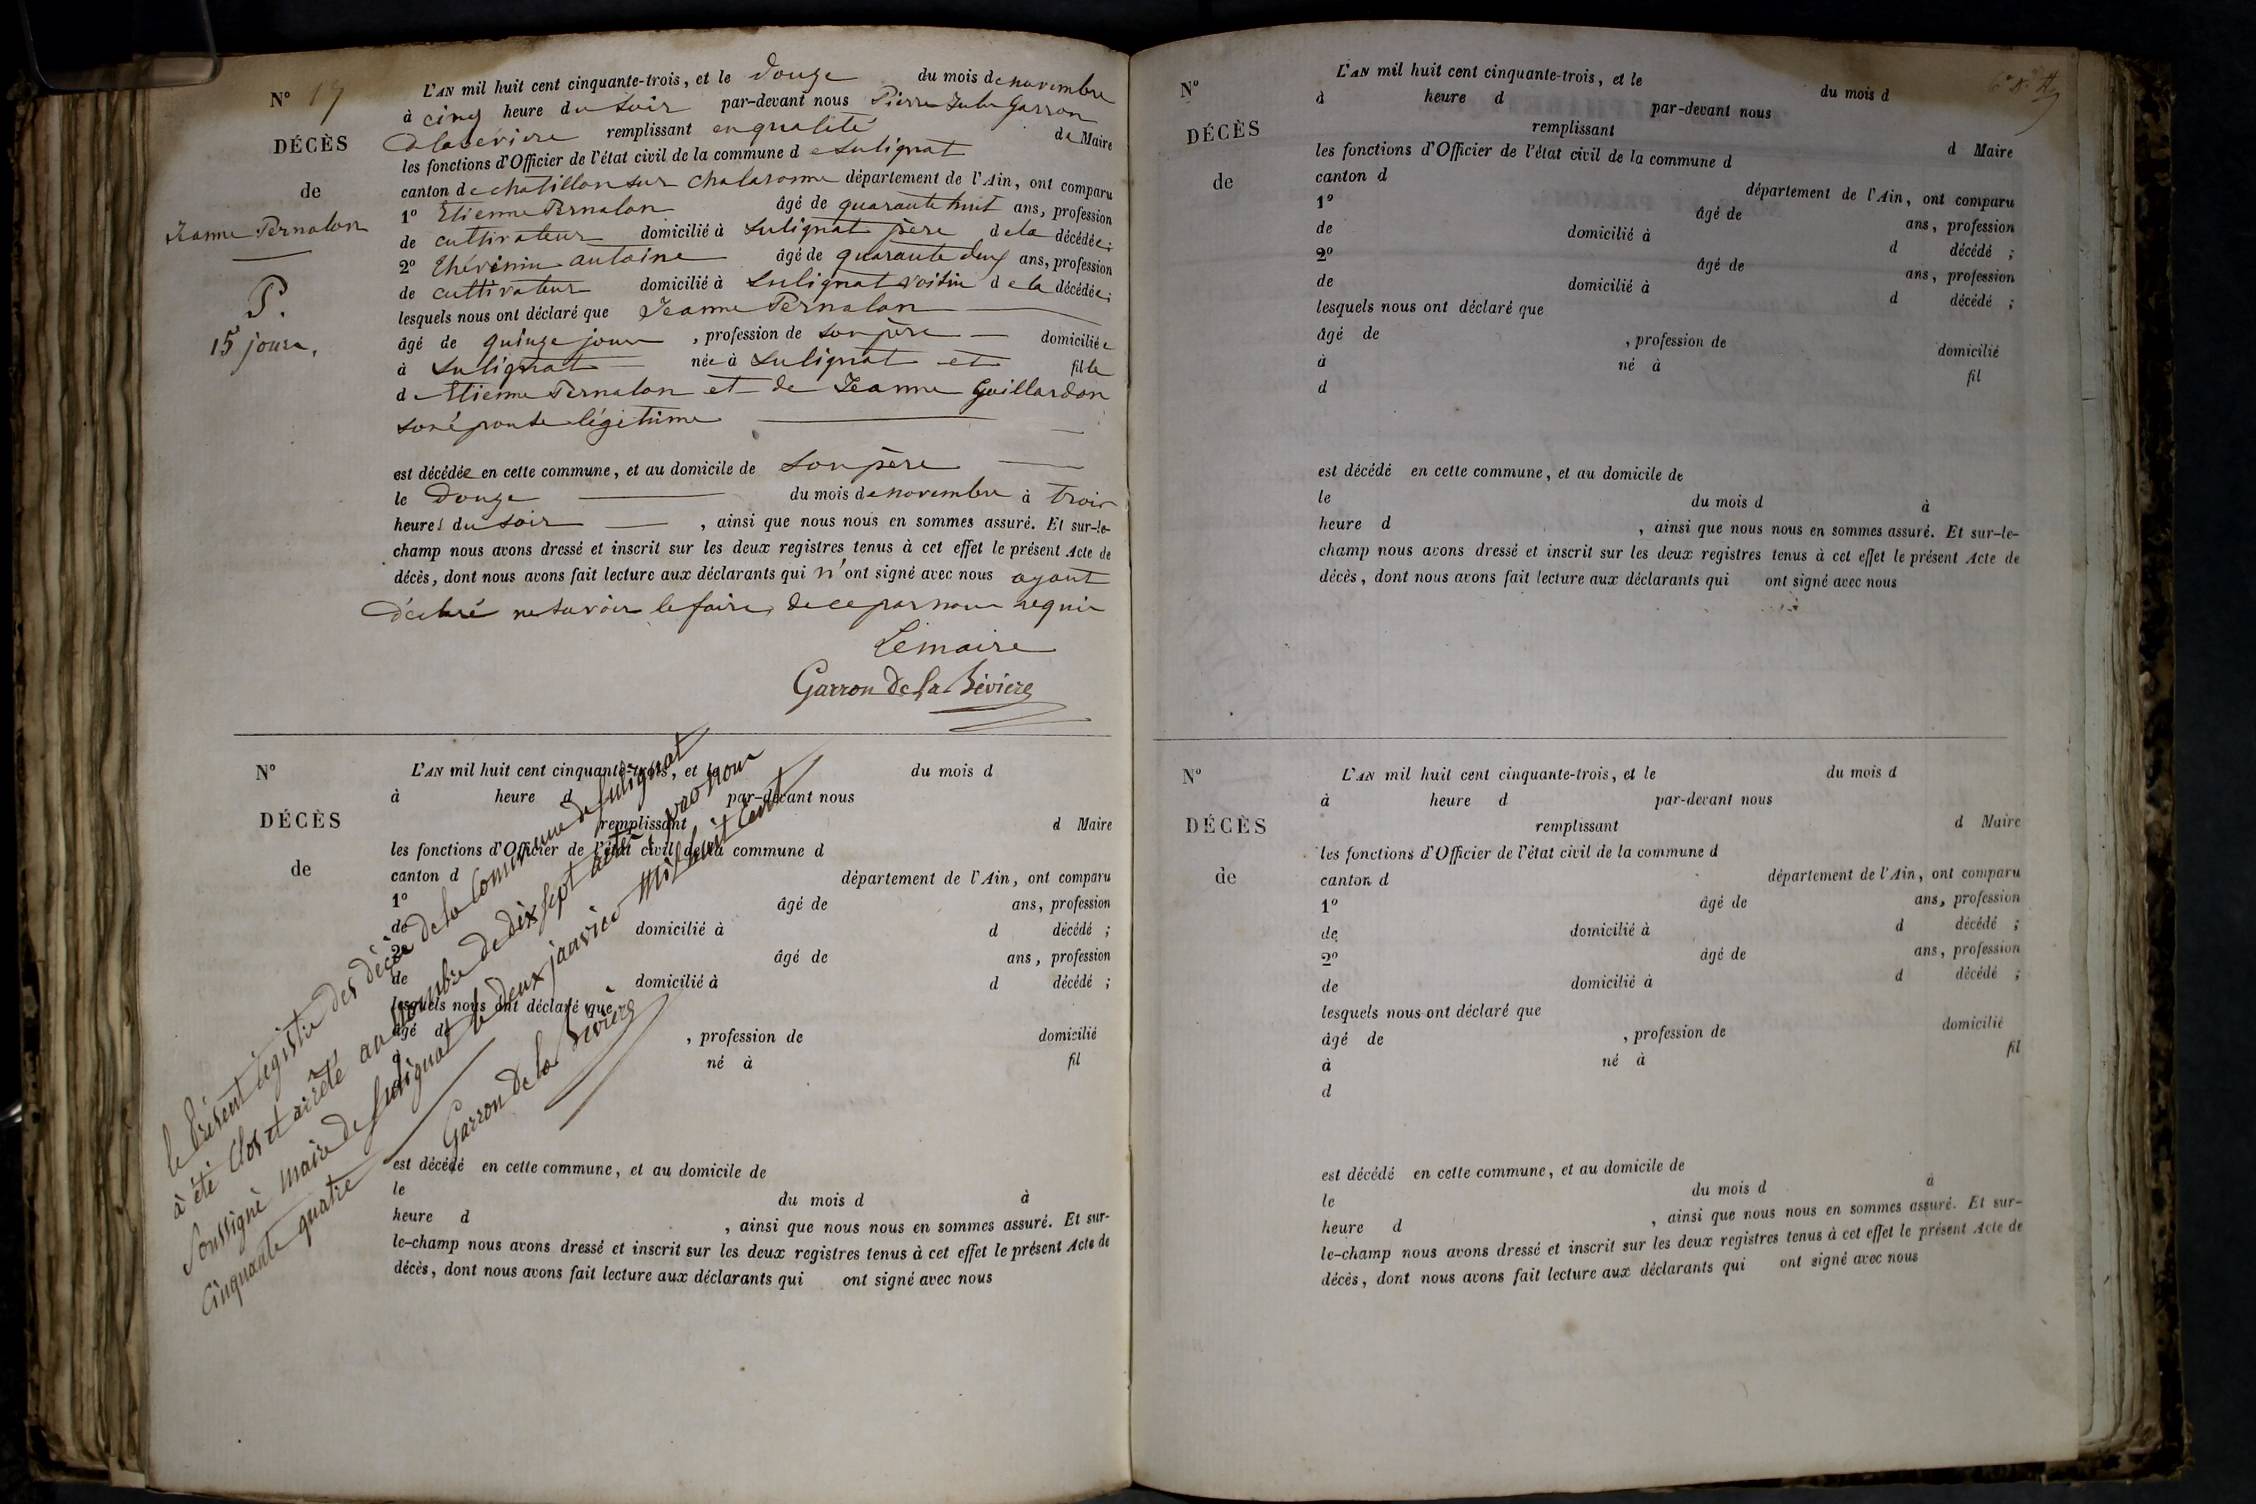 N° 17
DÉCÈS
de
Jeanne Pernalon
P.
15 jours.
L'AN mil huit cent cinquante-trois, et le douze du mois de novembre
à cinq heure du soir par-devant nous Pierre Jules Garron
Delabévière remplissant en qualité de Maire
les fonctions d'Officier de l'état civil de la commune de Sulignat
canton de chatillon sur chalaronne département de l'Ain, ont comparu
1° Etienne Pernalon âgé de quarante huit ans, profession
de cultivateur domicilié à Sulignat père de la décédée;
2° Thévenin antoine âgé de quarante deux ans, profession
de cultivateur domicilié à Sulignat voisin de la décédée;
lesquels nous ont déclaré que Jeanne Pernalon
âgé de quinze jours, profession de son père domiciliée
à Sulignat née à Sulignat et fille
de Etienne Pernalon et de Jeanne Guillardon
son épouse légitime
est décédée en cette commune, et au domicile de son père
le douze du mois de novembre à trois
heures du soir, ainsi que nous nous en sommes assuré. Et sur-le-
champ nous avons dressé et inscrit sur les deux registres tenus à cet effet le présent Acte de
décès, dont nous avons fait lecture aux déclarants qui n'ont signé avec nous ayant
déclaré ne savoir le faire, de ce par nous requis
Le maire
Garron de la Bévière
N°
DÉCÈS
de
L'AN mil huit cent cinquante-trois, et le du mois d
à heure d par-devant nous
remplissant d Maire
les fonctions d'Officier de l'état civil de la commune d
canton d département de l'Ain, ont comparu
1° âgé de ans, profession
de domicilié à d décédé ;
2° âgé de ans, profession
de domicilié à d décédé ;
lesquels nous ont déclaré que
âgé de , profession de domicilié
à né à fil
d
est décédé en cette commune, et au domicile de
le du mois d à
heure d , ainsi que nous nous en sommes assuré. Et sur-
le-champ nous avons dressé et inscrit sur les deux registres tenus à cet effet le présent Acte de
décès, dont nous avons fait lecture aux déclarants qui ont signé avec nous
le présent registre des décès de la commune de Sulignat
à été clos et arrêté au nombre de dix sept actes par nous
soussigné maire de Sulignat le deux janvier mil huit cent
cinquante quatre
Garron de la Bévière
N°
DÉCÈS
de
L'AN mil huit cent cinquante-trois, et le du mois d
à heure d par-devant nous
remplissant d Maire
les fonctions d'Officier de l'état civil de la commune d
canton d département de l'Ain, ont comparu
1° âgé de ans, profession
de domicilié à d décédé ;
2° âgé de ans, profession
de domicilié à d décédé ;
lesquels nous ont déclaré que
âgé de , profession de domicilié
à né à fil
d
est décédé en cette commune, et au domicile de
le du mois d à
heure d , ainsi que nous nous en sommes assuré. Et sur-le-
champ nous avons dressé et inscrit sur les deux registres tenus à cet effet le présent Acte de
décès, dont nous avons fait lecture aux déclarants qui ont signé avec nous
N°
DÉCÈS
de
L'AN mil huit cent cinquante-trois, et le du mois d
à heure d par-devant nous
remplissant d Maire
les fonctions d'Officier de l'état civil de la commune d
canton d département de l'Ain, ont comparu
1° âgé de ans, profession
de domicilié à d décédé ;
2° âgé de ans, profession
de domicilié à d décédé ;
lesquels nous ont déclaré que
âgé de , profession de domicilié
à né à fil
d
est décédé en cette commune, et au domicile de
le du mois d à
heure d , ainsi que nous nous en sommes assuré. Et sur-
le-champ nous avons dressé et inscrit sur les deux registres tenus à cet effet le présent Acte de
décès, dont nous avons fait lecture aux déclarants qui ont signé avec nous